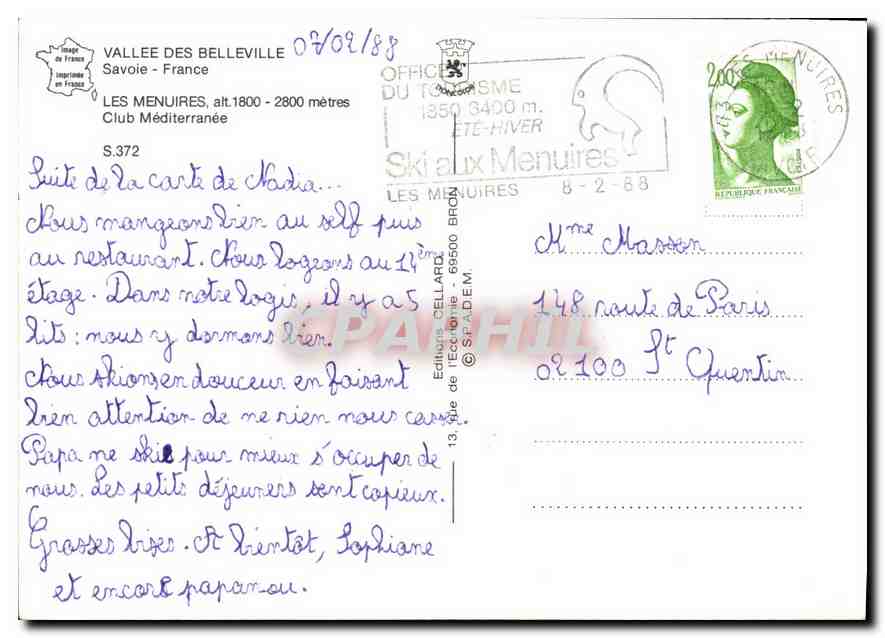 Image
de France
imprimée
en France
VALLEE DES BELLEVILLE
Savoie - France
07/02/88
LES MENUIRES, alt.1800 - 2800 mètres
Club Méditerranée
S.372
Suite de la carte de Nadia...
Nous mangeons bien au self puis
au restaurant. Nous logeons au 14ème
étage. Dans notre logis, il y a 5
lits : nous y dormons bien.
Nous skions en douceur en faisant
bien attention de ne rien nous casser.
Papa ne skie pour mieux s'occuper de
nous. Les petits déjeuners sont copieux.
Grosses bises. A bientôt, Sophiane
et encore papanou.
Editions CELLARD
13, rue de l'Economie - 69500 BRON
© S.P.A.D.E.M.
OFFICE
DU TOURISME
1850 3400 m.
ÉTÉ-HIVER
Ski aux Menuires
LES MENUIRES 8-2-88
LES MENUIRES
2,00
REPUBLIQUE FRANÇAISE
Mme Masson
148 route de Paris
02100 St Quentin
CPAPHIL